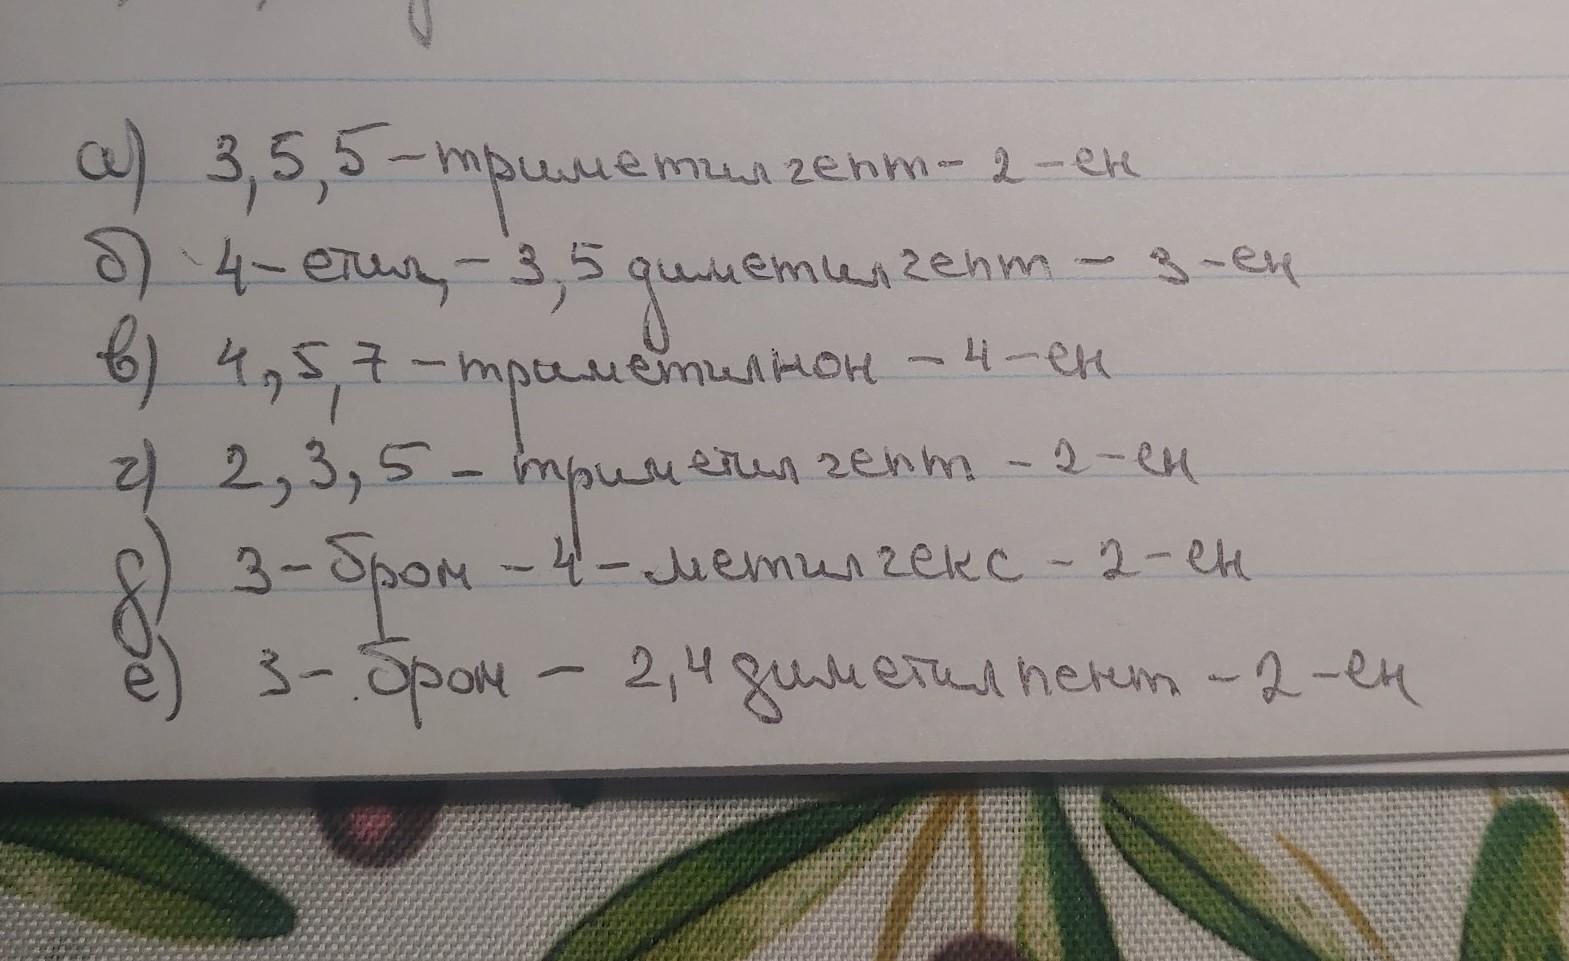 а) 3,5,5-триметилгепт-2-ен
б) 4-етил,-3,5 диметилгепт-3-ен
в) 4,5,7-триметилнон-4-ен
г) 2,3,5-триметилгепт-2-ен
д) 3-бром-4-метилгекс-2-ен
е) 3-бром-2,4 диметилпент-2-ен